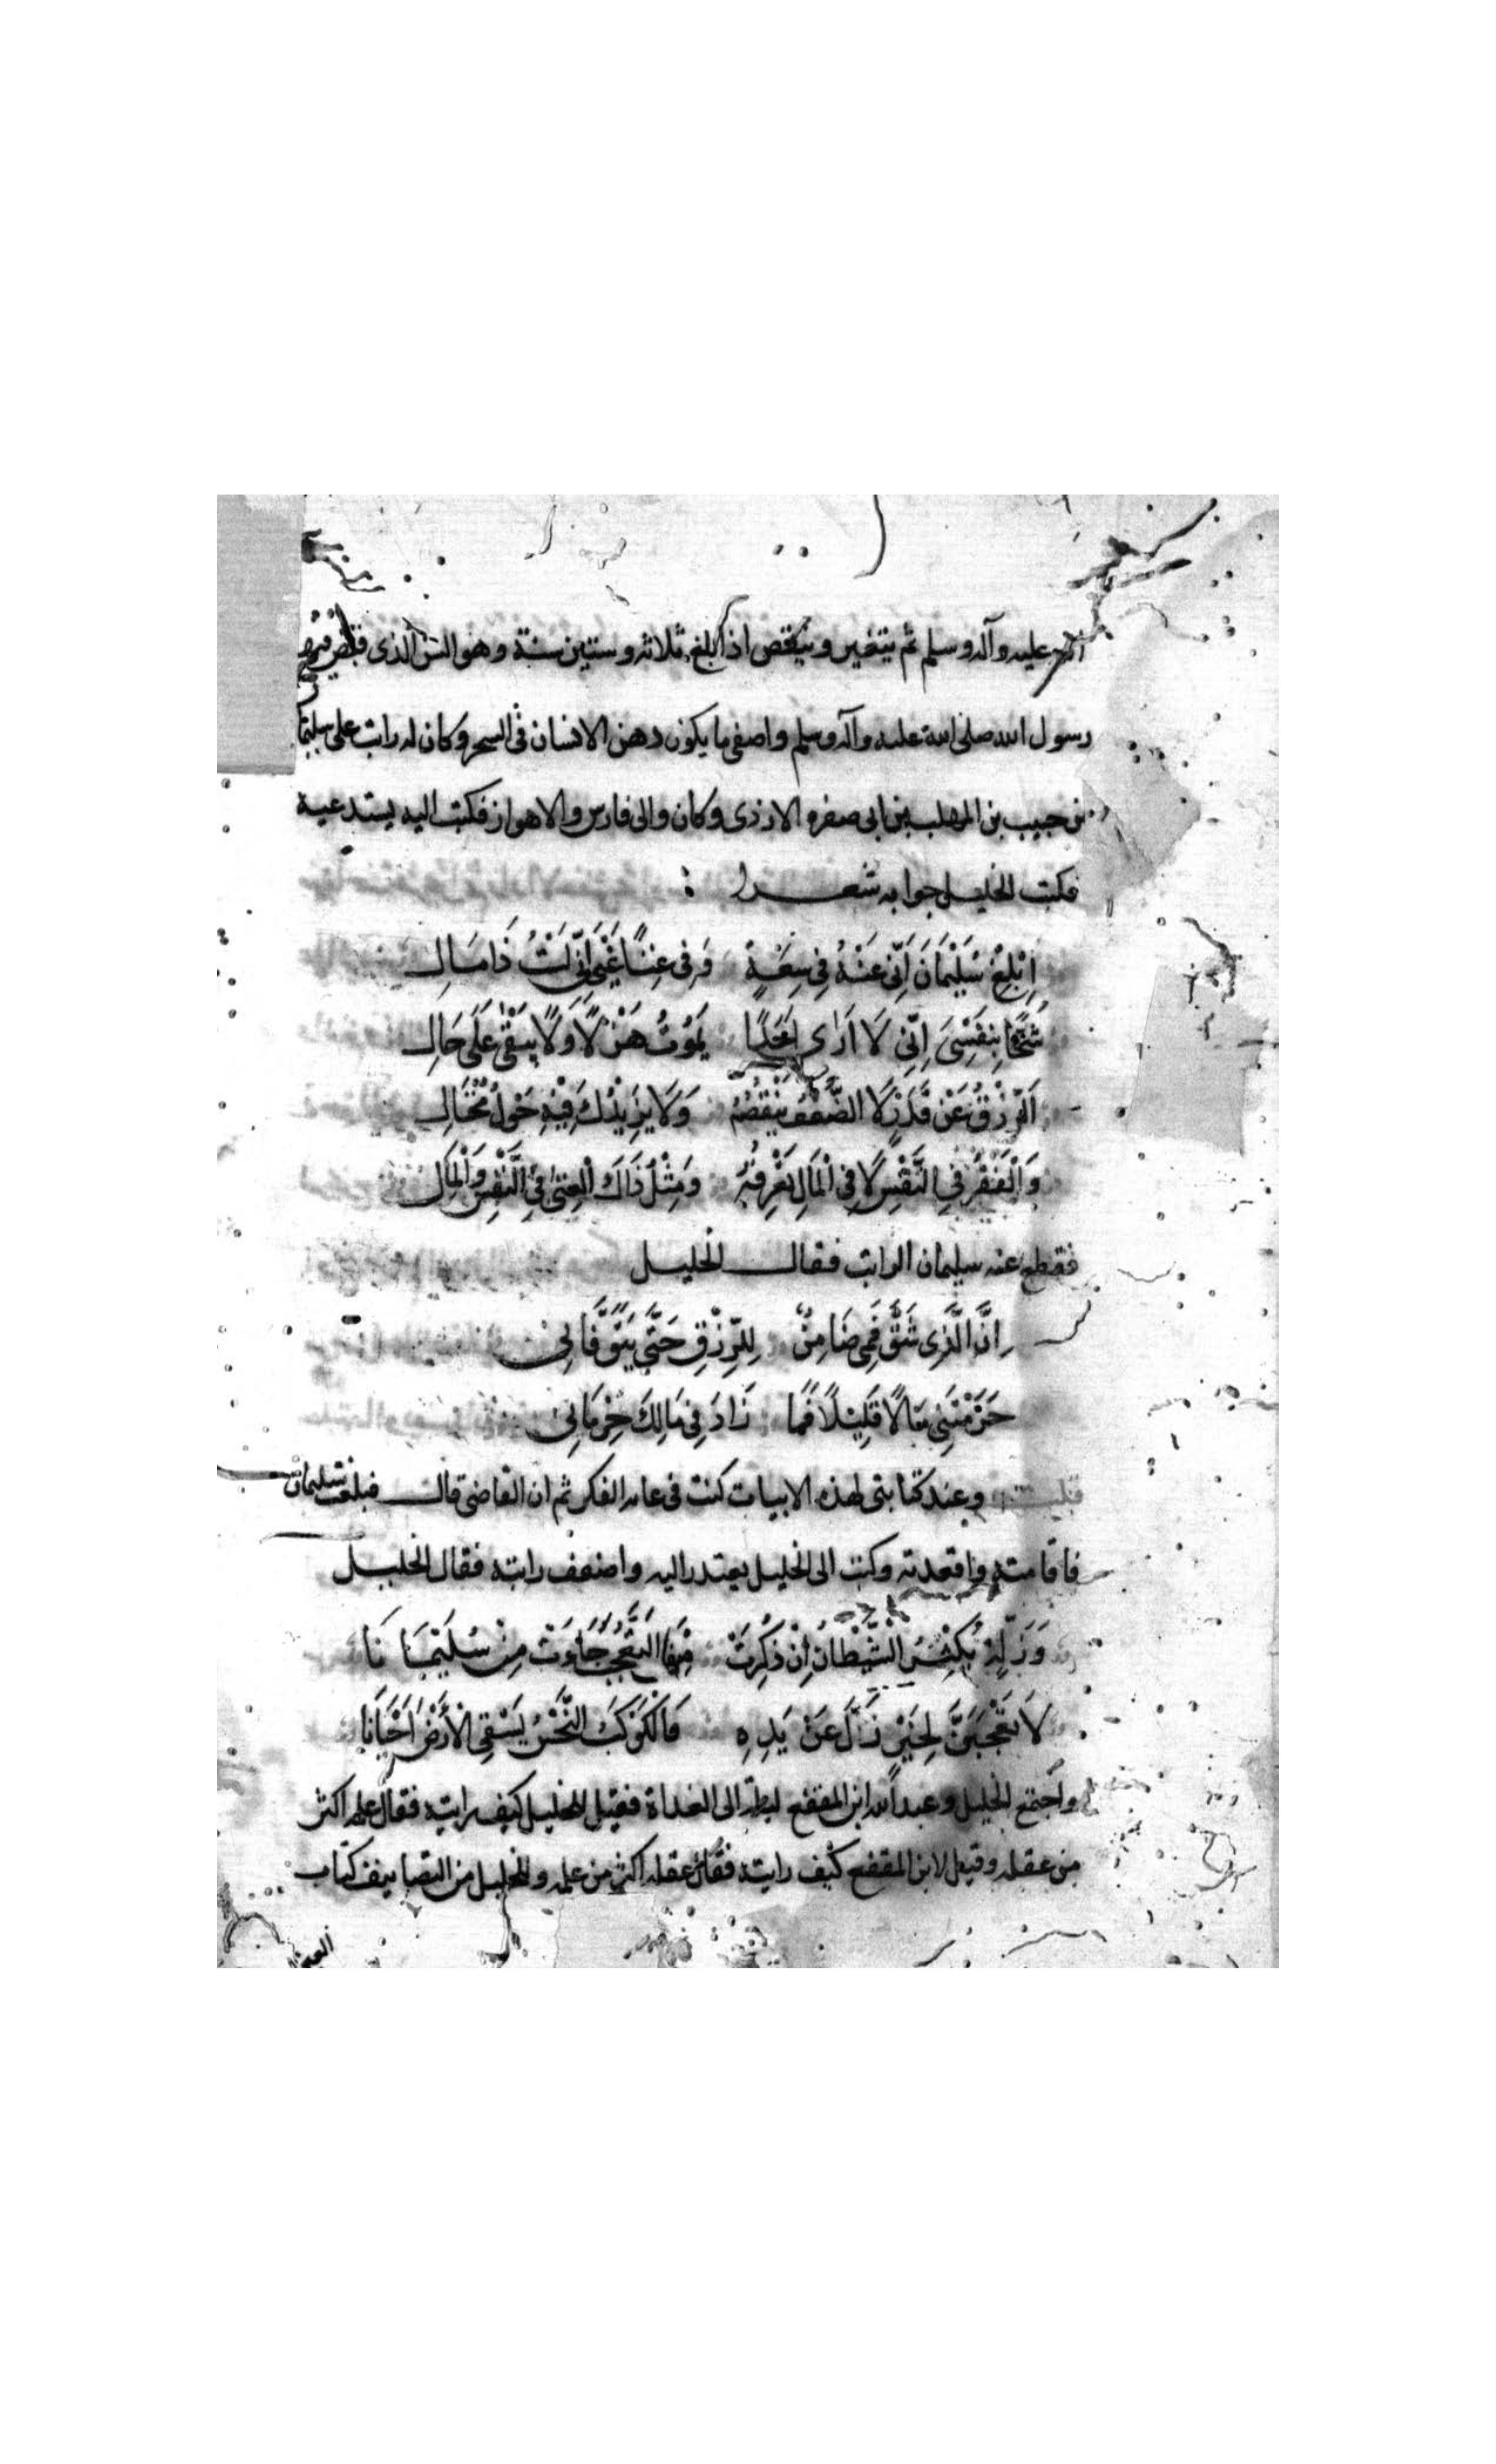 عليه وآله وسلم ثم يتغير وينقص اذا بلغ ثلاثه وستين سنة وهو السن الذى قبض فيه
رسول الله صلى الله عليه وآله وسلم واصفى ما يكون ذهن الانسان فى السحر وكان له راتب على سليمان
بن حبيب بن المهلب بن ابى صفره الازدى وكان والى فارس والاهواز فكتب اليه يستدعيه
فكتب الخليل جوابه شعرا :
اَبْلِغْ سُلَيْمَانَ اَنِّى عَنْهُ فِى سِعَةٍ وَفِى غِنًا غَيْرَ اَنِّى لَسْتُ ذَا مَالِ
شُحًّا بِنَفْسِىَ اِنِّى لَا اَرَى اَحَدًا يَمُوتُ هَزْلًا وَلَا يَبْقَى عَلَى حَالِ
اَلرِّزْقُ عَنْ قَدَرٍ لَا الضَّعْفُ يَنْقُصُهُ وَلَا يَزِيْدُكَ فِيْهِ حَوْلُ مُحْتَالِ
وَالْفَقْرُ فِى النَّفْسِ لَا فِى الْمَالِ تَعْرِفُهُ وَمِثْلُ ذَاكَ الْغِنَى فِى النَّفْسِ وَالْمَالِ
فقطع عنه سليمان الراتب فقال الخليل
اِنَّ الَّذِى شَقَّ فَمِى ضَامِنٌ لِلرِّزْقِ حَتَّى يَتَوَفَّانِى
حَرَمْتَنِى مَالًا قَلِيْلًا فَمَا زَادَ فِى مَالِكَ حِرْمَانِى
قلت وعند كتابتى لهذه الابيات كنت فى عام الفكر ثم ان القاضى قال فبلغت سليمان
فاقامته واقعدته وكتب الى الخليل يعتذر اليه واضعف راتبه فقال الخليل
وَزَلَّةٍ يُكْثِرُ الشَّيْطَانُ اِنْ ذُكِرَتْ مِنْهَا التَّعَجُّبَ جَاءَتْ مِنْ سُلَيْمَانَا
لَا تَعْجَبَنَّ لِخَيْرٍ زَلَّ عَنْ يَدِهِ فَالْكَوْكَبُ النَّحْسُ يَسْقِى الْأَرْضَ اَحْيَانَا
واجتمع الخليل وعبد الله ابن المقفع ليلة الى الغداة فقيل للخليل كيف رايته فقال علمه اكثر
من عقله وقيل لابن المقفع كيف رايته فقال عقله اكثر من علمه وللخليل من التصانيف كتاب
العين